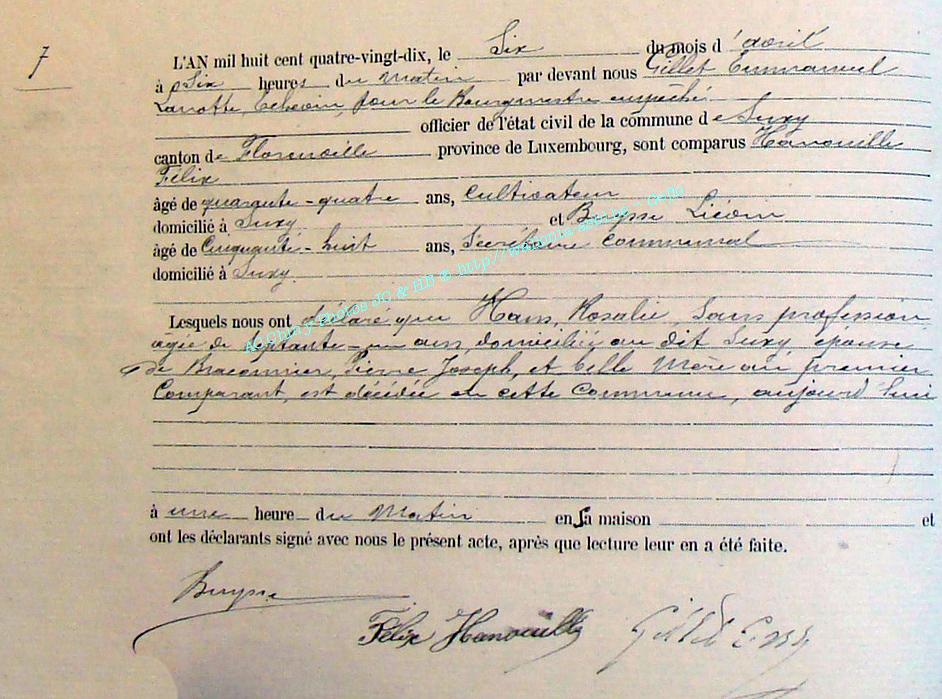 7
L'AN mil huit cent quatre-vingt-dix, le Six du mois d'avril
à Six heures du Matin par devant nous Gillet Emmanuel
Lanotte, Echevin, pour le Bourgmestre empêché
officier de l'état civil de la commune de Suxy
canton de Florenville province de Luxembourg, sont comparus Hanouille
Félix
âgé de quarante-quatre ans, Cultivateur
domicilié à Suxy et Buysse Liévin
âgé de Cinquante-huit ans, Secrétaire Communal
domicilié à Suxy
Lesquels nous ont déclaré que Hans, Rosalie, Sans profession
agée de septante-un ans, domiciliée au dit Suxy, épouse
de Braconnier, Pierre Joseph, et belle Mère au premier
Comparant, est décédée en cette Commune, aujourd'hui
à une heure du Matin en Sa maison et
ont les déclarants signé avec nous le présent acte, après que lecture leur en a été faite.
Buysse
Félix Hanouille Gillet Emm